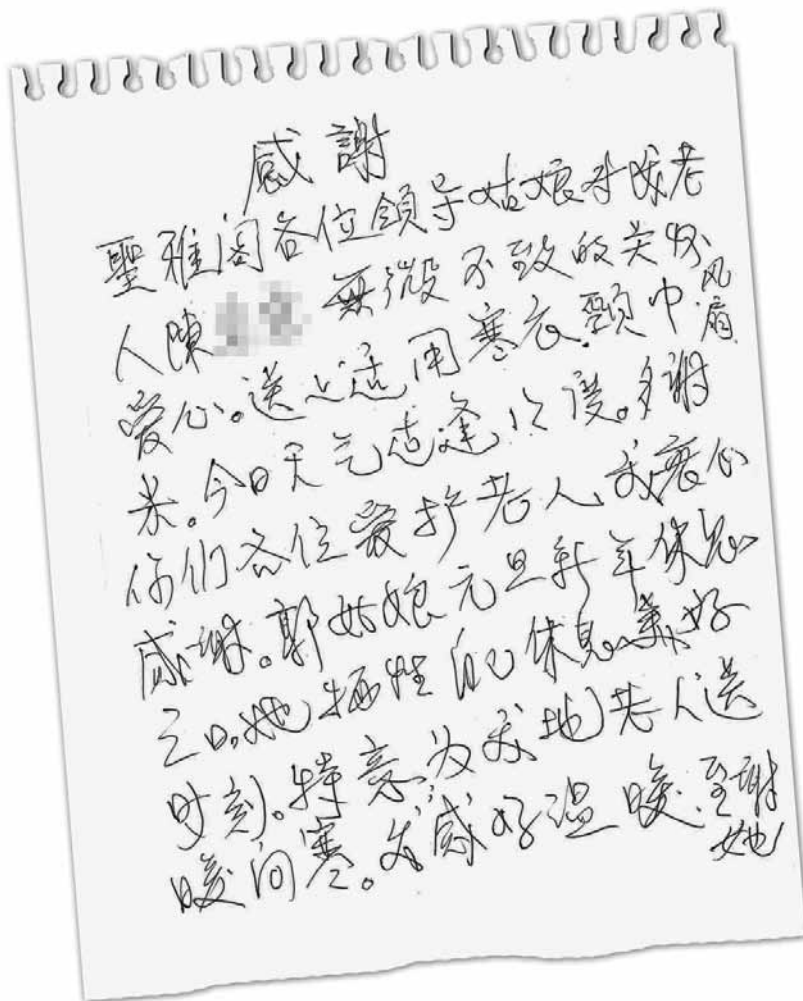 感謝
聖雅阁各位領导姑娘对老
人陳 無微不致的关怀
爱心。送上适用寒衣.頸巾风扇
米。今日天气逢12度。多谢
你们各位爱护老人我衷心
感谢。郭姑娘元旦新年休息
三日。她牺牲自己休息美好
时刻。特意为我地老人送
暖问寒。我感好温暖.至谢
她